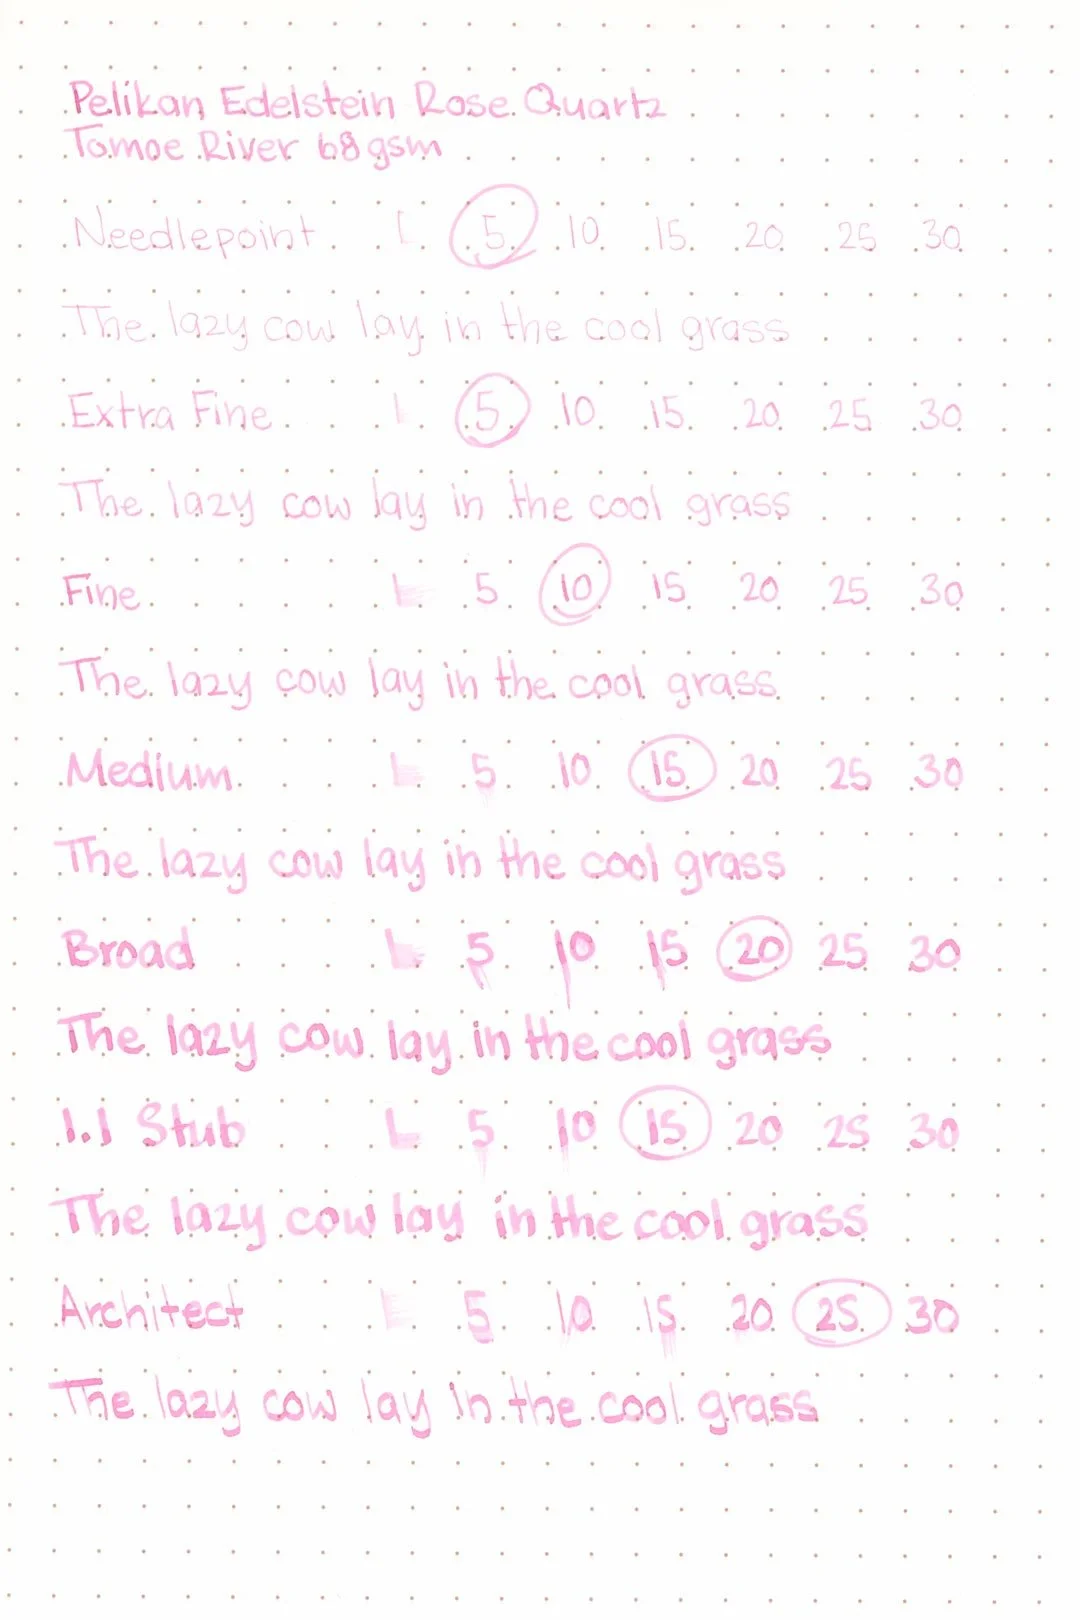 Pelikan Edelstein Rose Quartz
Tomoe River 68gsm
Needlepoint L 5 10 15 20 25 30
The lazy cow lay in the cool grass
Extra Fine L 5 10 15 20 25 30
The lazy cow lay in the cool grass
Fine L 5 10 15 20 25 30
The lazy cow lay in the cool grass
Medium L 5 10 15 20 25 30
The lazy cow lay in the cool grass
Broad L 5 10 15 20 25 30
The lazy cow lay in the cool grass
1.1 Stub L 5 10 15 20 25 30
The lazy cow lay in the cool grass
Architect L 5 10 15 20 25 30
The lazy cow lay in the cool grass